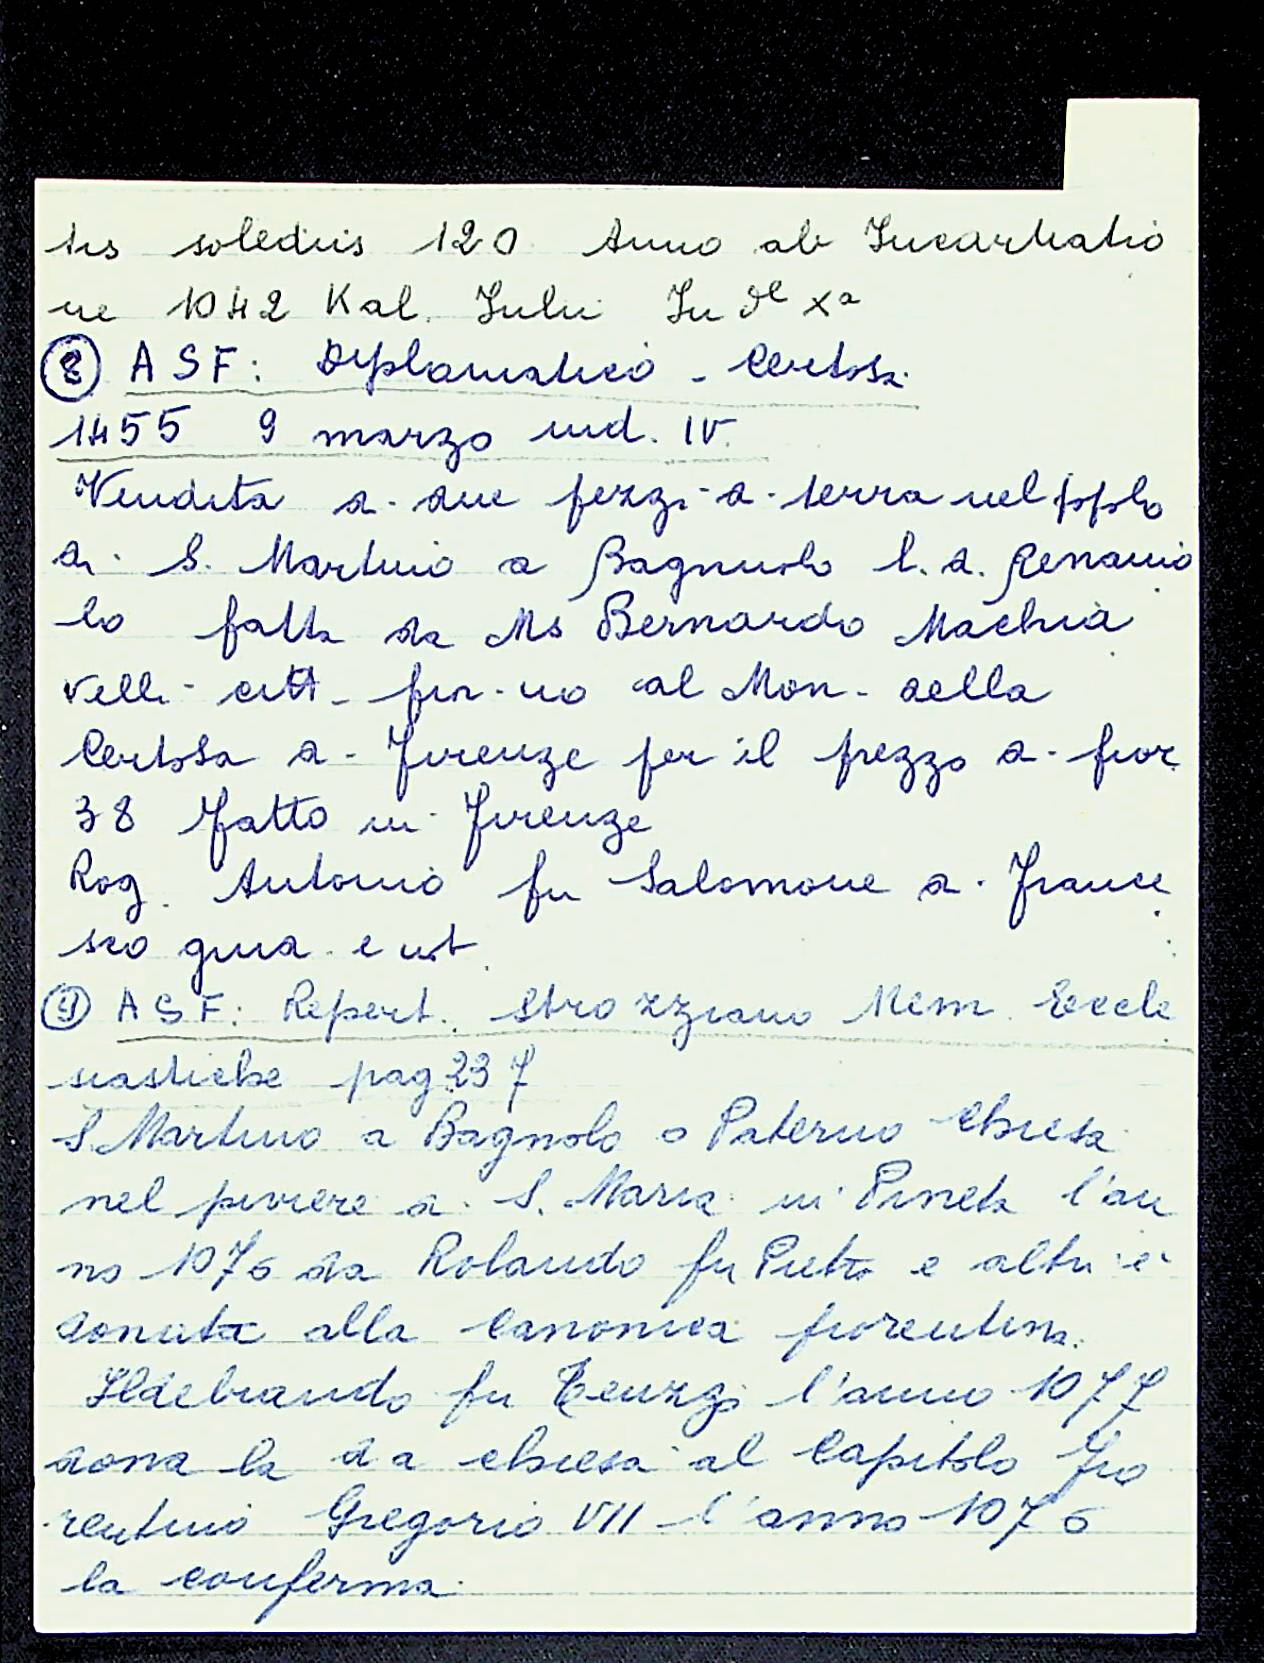 tus soledius 120 Anno ab Incarnatio
ne 1042 Kal. Iulii Ind xª
8 ASF: Diplomatico - Certosa
1455 9 marzo ind. IV.
Vendita di due pezzi di terra nel popolo
di S. Martino a Bagnuolo l. d.
lo fatta da Ms Bernardo Machia
velli citt. fior-no al Mon. della
Certosa di Firenze per il prezzo di fior.
38 Fatto in Firenze
Rog. Antonio fu Salomone di France
sco giud. e not.
9 ASF: Repert. Strozziano Mem. Eccle
siastiche pag 237
S Martino a Bagnolo o Paterno Chiesa
nel piviere di S. Maria in Pineta l'an
no 1076 da Rolando fu Pietro e altri è
donata alla Canonica fiorentina.
Ildebrando fu Teuzzi l'anno 1077
dona la da chiesa al Capitolo Fio
rentino Gregorio VII l'anno 1076
la conferma.